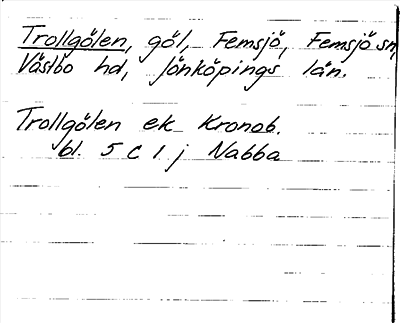 Trollgölen, göl, Femsjö, Femsjö sn,
Västbo hd, Jönköpings län.
Trollgölen ek Kronob.
bl. 5 C 1 j Nabba